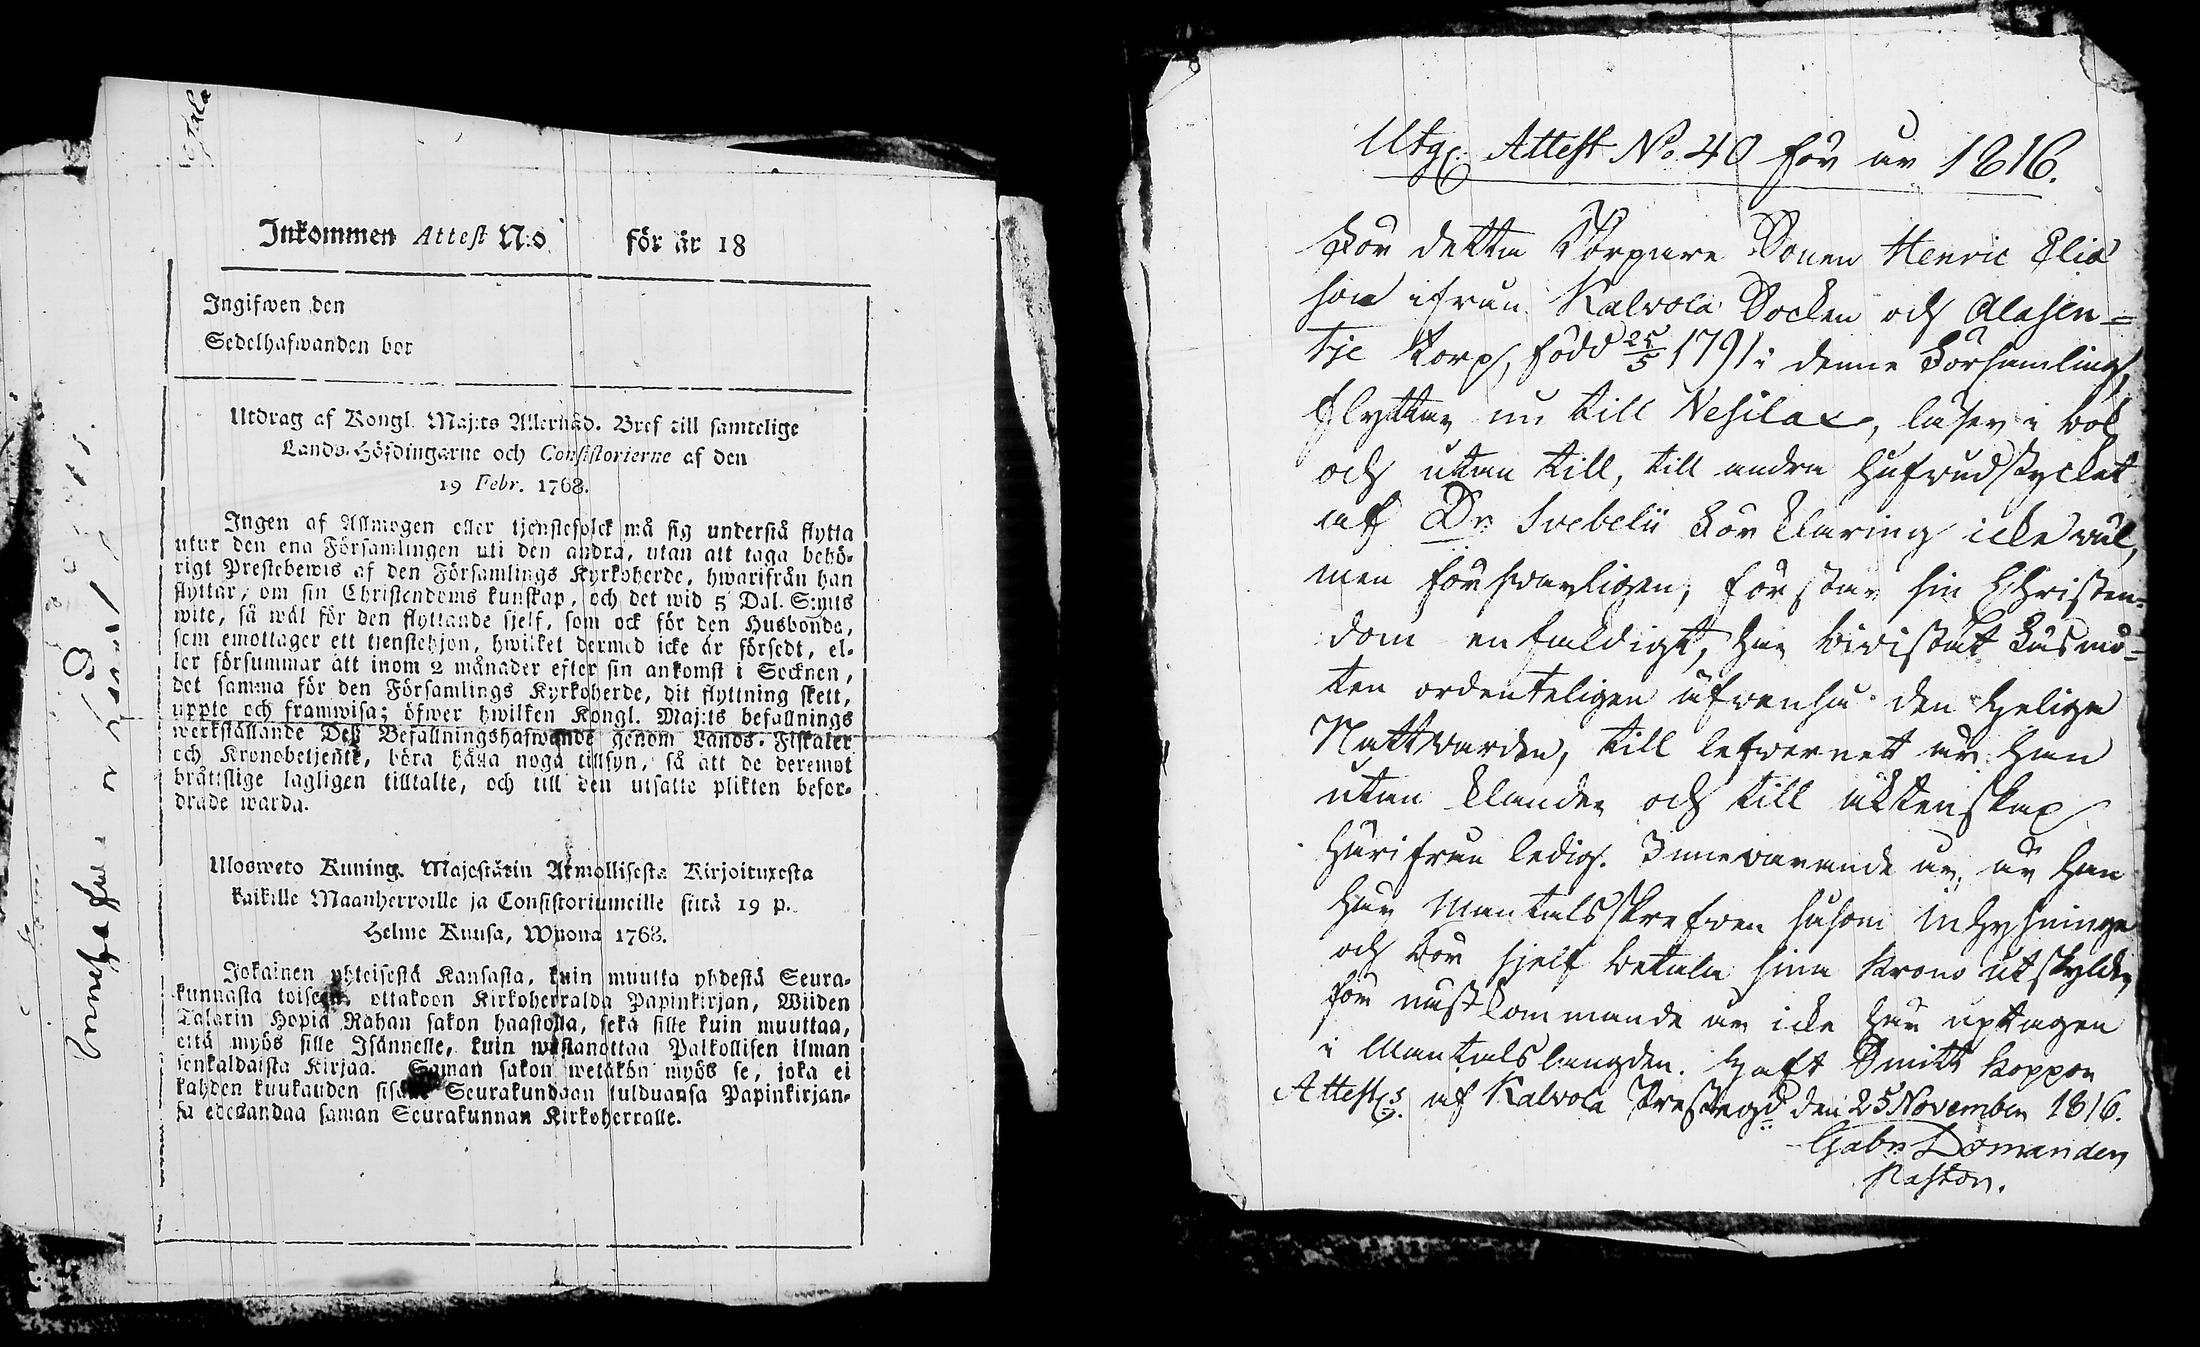 Inkommen Attest N:o för år 18
Ingifwen den
Sedelhafwanden bor
Utdrag af Kongl. Maj:ts Allernåd. Bref till samtelige
Lands-Höfdingarne och Consistorierne af den
19 Febr. 1768.
Ingen af Allmogen eller tjenstefolck må sig understå flytta
utur den ena Församlingen uti den andra, utan att taga behö-
rigt Prestebewis af den Församlings Kyrkoherde, hwarifrån han
flyttar, om sin Christendoms kunskap, och det wid 5 Dal. S:mts
wite, så wäl för den flyttande sjelf, som ock för den Husbonde,
som emottager ett tjenstehjon, hwilket dermed icke är försedt, el-
ler försummar att inom 2 månader efter sin ankomst i Socknen,
det samma för den Församlings Kyrkoherde, dit flyttning skett,
uppte och framwisa; öfwer hwilken Kongl. Maj:ts befallnings
werkställande Deß Befallningshafwande genom Lands-Fiskaler
och Kronobetjente, böra hålla noga tillsyn, så att de deremot
bråttslige lagligen tilltalte, och till den utsatte plikten befor-
drade warda.
Ulosweto Kuning. Majestätin Armollisesta Kirjoituxesta
kaikille Maanherroille ja Consistoriumeille siitä 19 p.
Helme Kuusa, Wuona 1768.
Jokainen yhteisestä Kansasta, kuin muutta yhdestä Seura-
kunnasta toiseen, ottakoon Kirkoherralda Papinkirjan, Wiiden
Talarin Hopia Rahan sakon haastolla, sekä sille kuin muuttaa,
että myös sille Isännelle, kuin wastanottaa Palkollisen ilman
senkaldaista Kirjaa. Saman sakon wetäkön myös se, joka ei
kahden kuukauden sisälle Seurakundaan tulduansa Papinkirjan-
sa edesandaa saman Seurakunnan Kirkoherralle.
Utg. Attest No 40 för år 1816.
För detta Torpare Sonen Henric Elia
son ifrån Kalvola Socken och Alasen-
tje torp, född 25/5 1791 i denne Församling,
flyttar nu till Vesilax, läser i bok
och utan till, till andra hufvudstycket
af Dr Svebelii Förklaring icke väl,
men försvarligen, förstår sin Christen-
dom enfaldigt, har bivistat Läsmö-
ten ordenteligen äfvenså den Helige
Nattvarden, till lefvernet är han
utan klander och till äktenskap
härifrån ledig. Innevarande år, är han
här Mantalsskrefven såsom inhysninge
och bör sjelf betala sina Krono utskylder
för nästkommande år icke här uptagen
i Mantalslängden. Haft Smitt koppor
Attest.s af Kalvola Prestegd den 25 November 1816.
Gabr. Domander
Pastor.